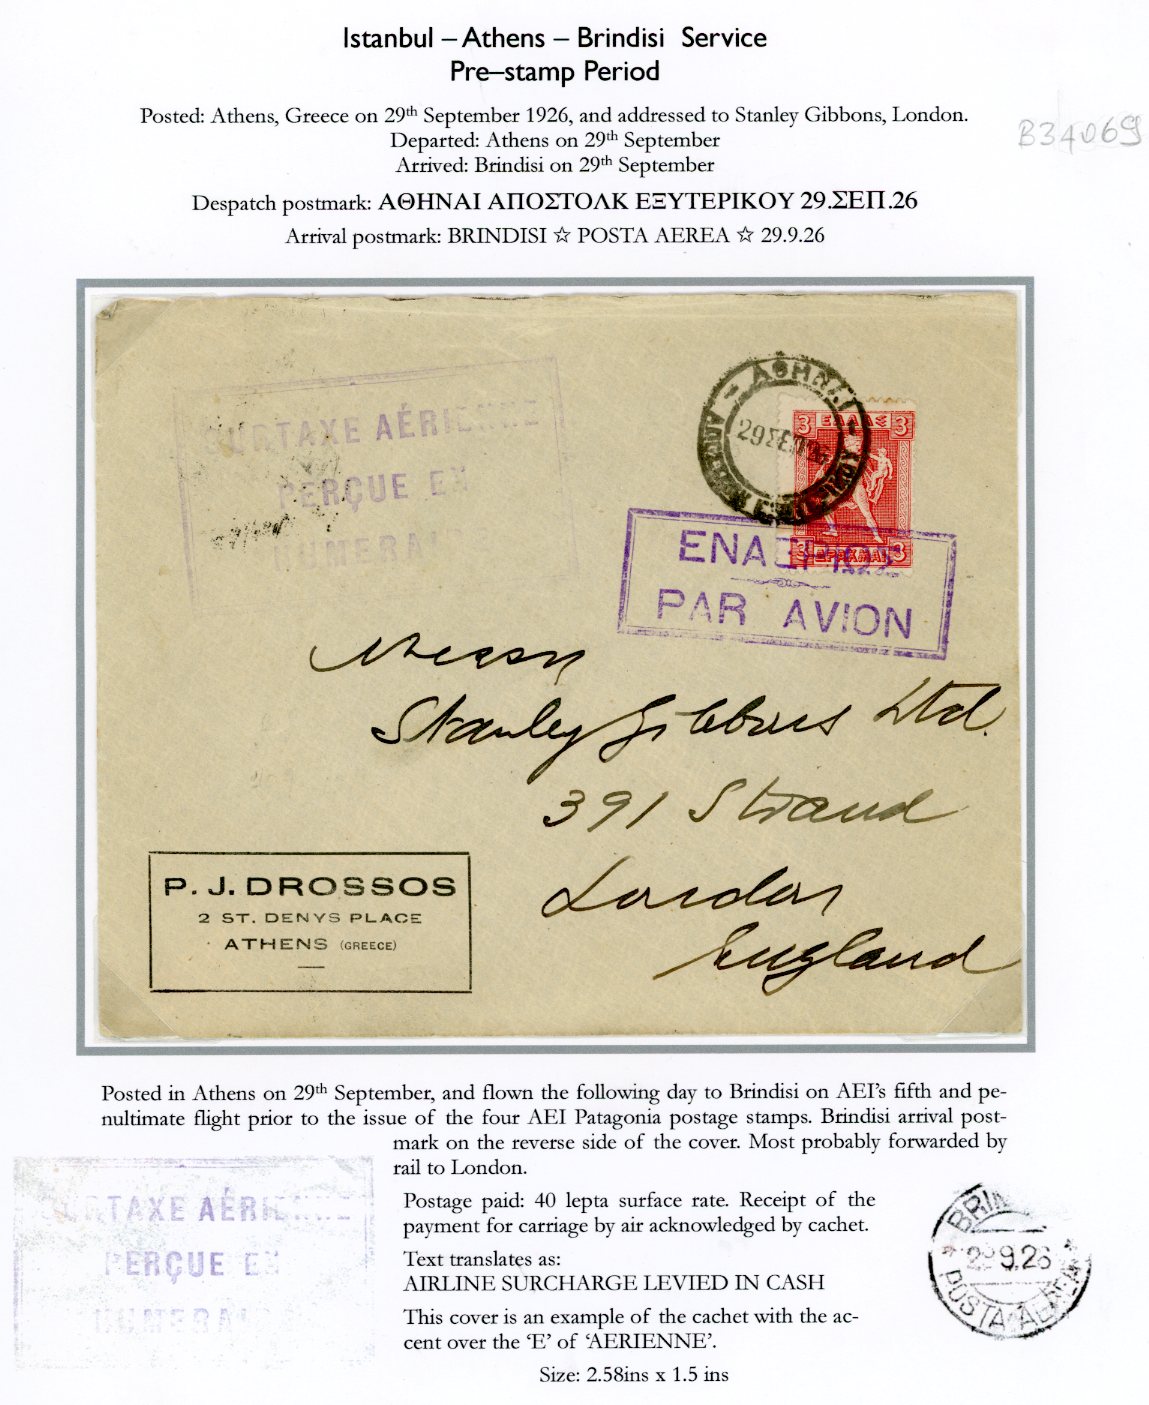 Istanbul – Athens – Brindisi Service
Pre–stamp Period
Posted: Athens, Greece on 29th September 1926, and addressed to Stanley Gibbons, London.
Departed: Athens on 29th September
Arrived: Brindisi on 29th September
B34069
Despatch postmark: ΑΘΗΝΑΙ ΑΠΟΣΤΟΛΚ ΕΞΥΤΕΡΙΚΟΥ 29.ΣΕΠ.26
Arrival postmark: BRINDISI ☆ POSTA AEREA ☆ 29.9.26
SURTAXE AÉRIENNE
PERÇUE EN
NUMERAI
ΑΘΗΝΑΙ
29 ΣΕΠ 26
3 ΕΛΛΑΣ 3
3 ΔΡΑΧΜΑΙ 3
ΕΝΑΕΡΙΩΣ
PAR AVION
Messrs
Stanley Gibbons Ltd.
391 Strand
London
England
P. J. DROSSOS
2 ST. DENYS PLACE
ATHENS (GREECE)
Posted in Athens on 29th September, and flown the following day to Brindisi on AEI's fifth and pe-
nultimate flight prior to the issue of the four AEI Patagonia postage stamps. Brindisi arrival post-
mark on the reverse side of the cover. Most probably forwarded by
rail to London.
SURTAXE AÉRIENNE
PERÇUE EN
NUMERAI
Postage paid: 40 lepta surface rate. Receipt of the
payment for carriage by air acknowledged by cachet.
Text translates as:
AIRLINE SURCHARGE LEVIED IN CASH
This cover is an example of the cachet with the ac-
cent over the 'E' of 'AERIENNE'.
Size: 2.58ins x 1.5 ins
BRIN
29 9.26
POSTA AEREA